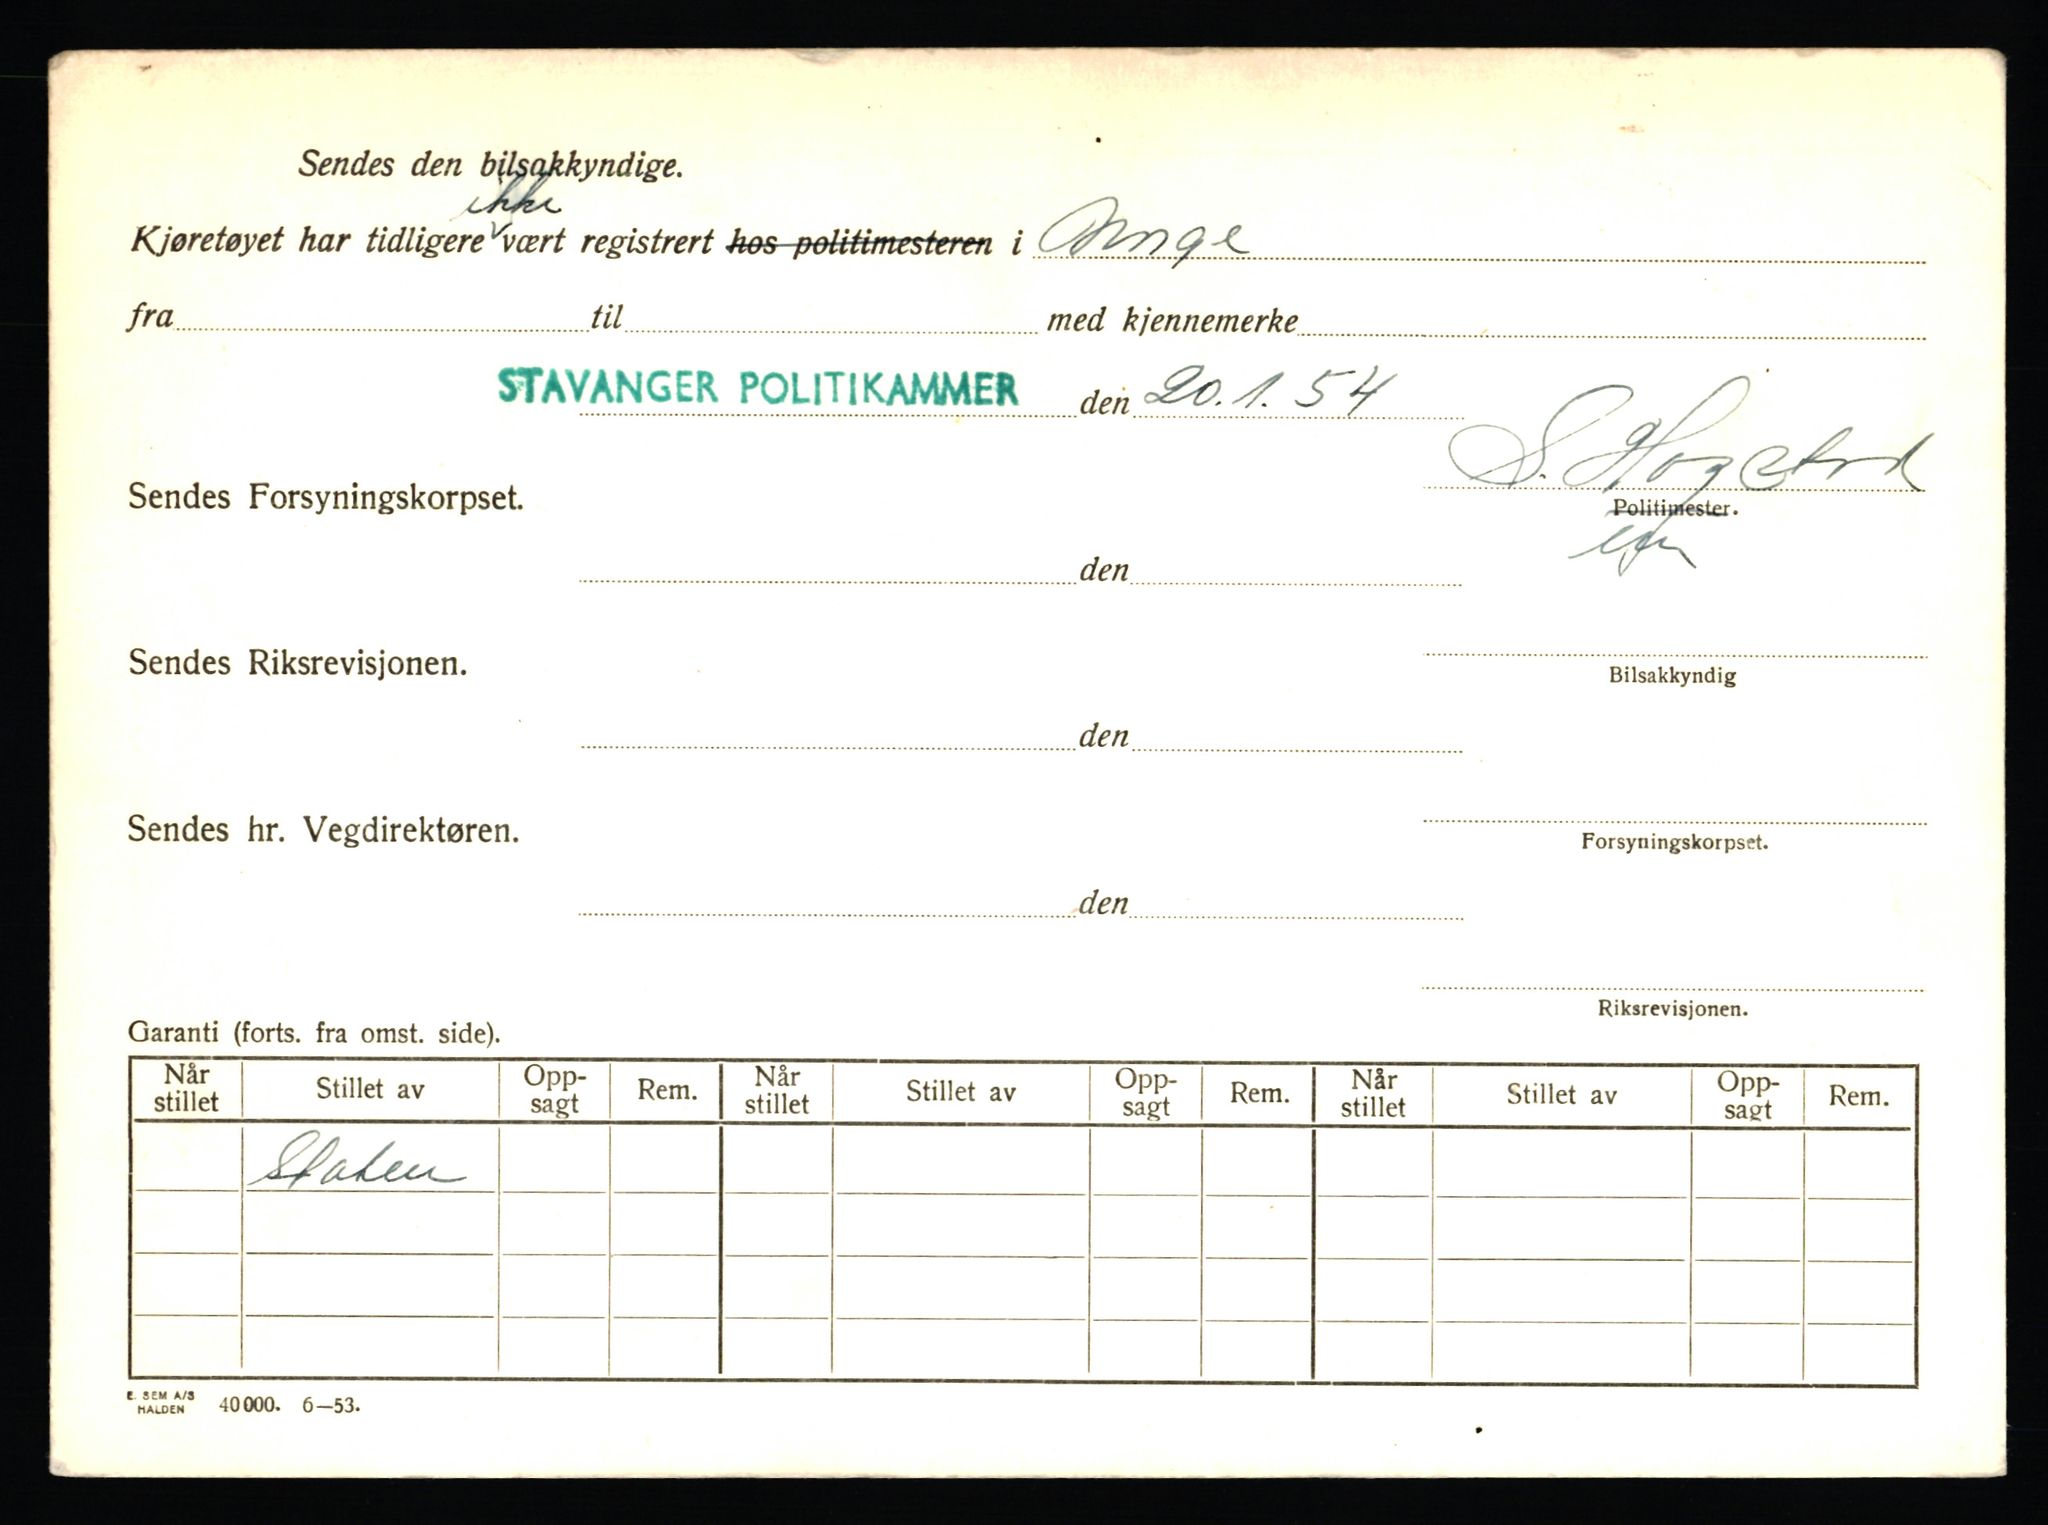 Sendes den bilsakkyndige.
ikke
Kjøretøyet har tidligere vært registrert hos politimesteren i Norge
fra til med kjennemerke
STAVANGER POLITIKAMMER den 20.1.54
Sendes Forsyningskorpset.
Politimester.
den
Sendes Riksrevisjonen.
Bilsakkyndig
den
Sendes hr. Vegdirektøren.
Forsyningskorpset.
den
Riksrevisjonen.
Garanti (forts. fra omst. side).
Når stillet Stillet av Opp-sagt Rem. Når stillet Stillet av Opp-sagt Rem. Når stillet Stillet av Opp-sagt Rem.
Staten
E. SEM A/S HALDEN 40000. 6—53.